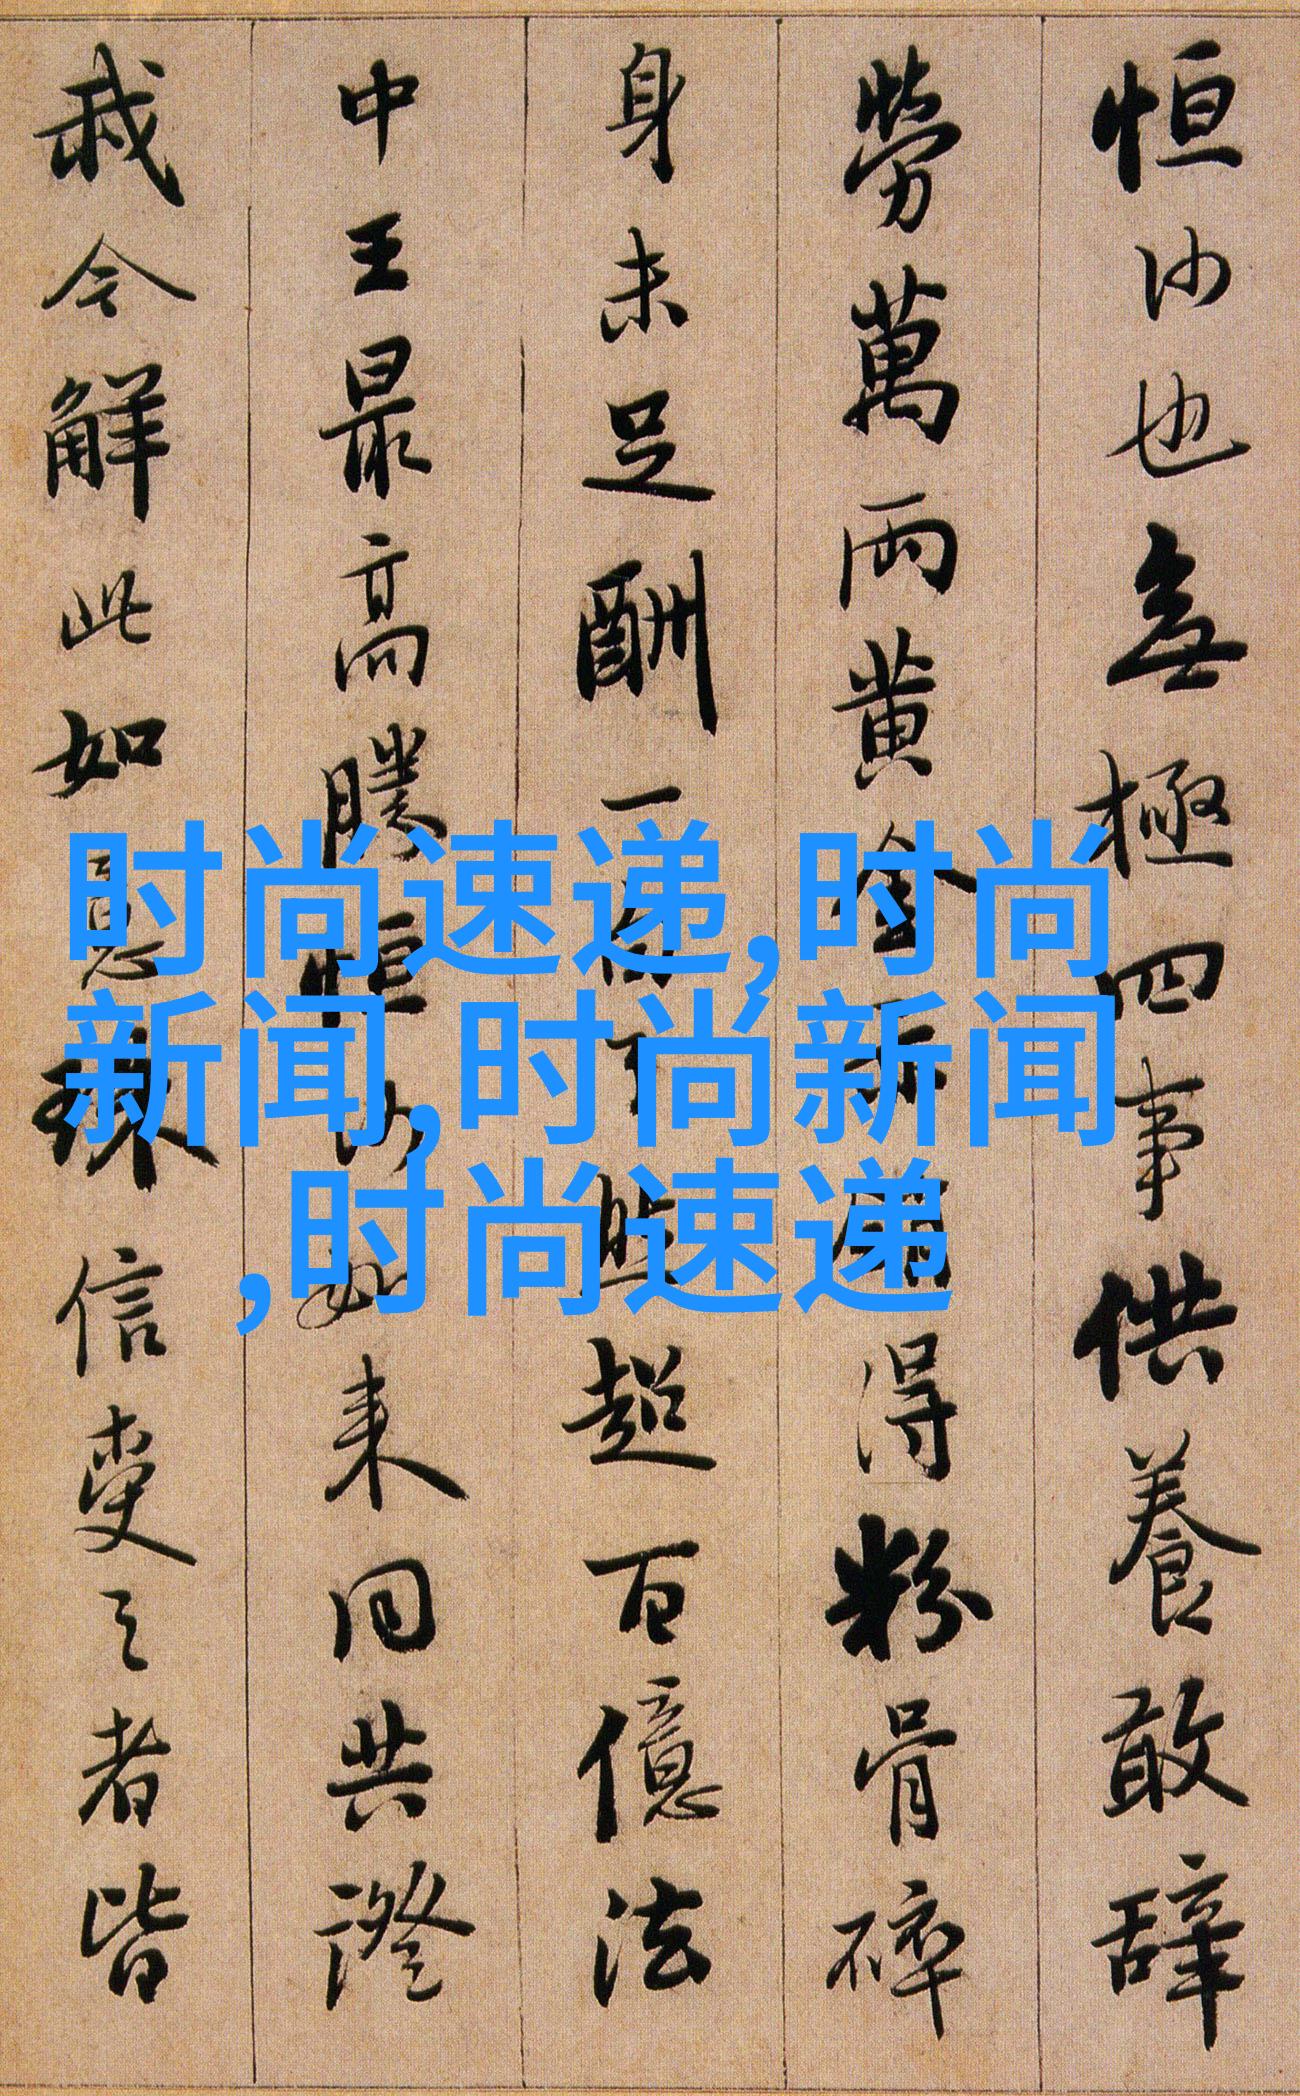 恒沙也無極四事供養敢辭
勞萬兩黃金亦得粉骨碎
身未足酬一超百億法
中王最高勝恒沙如來同共證
我今解此如意珠信受之者皆
时尚速递,时尚
新闻,时尚新闻
,时尚速递